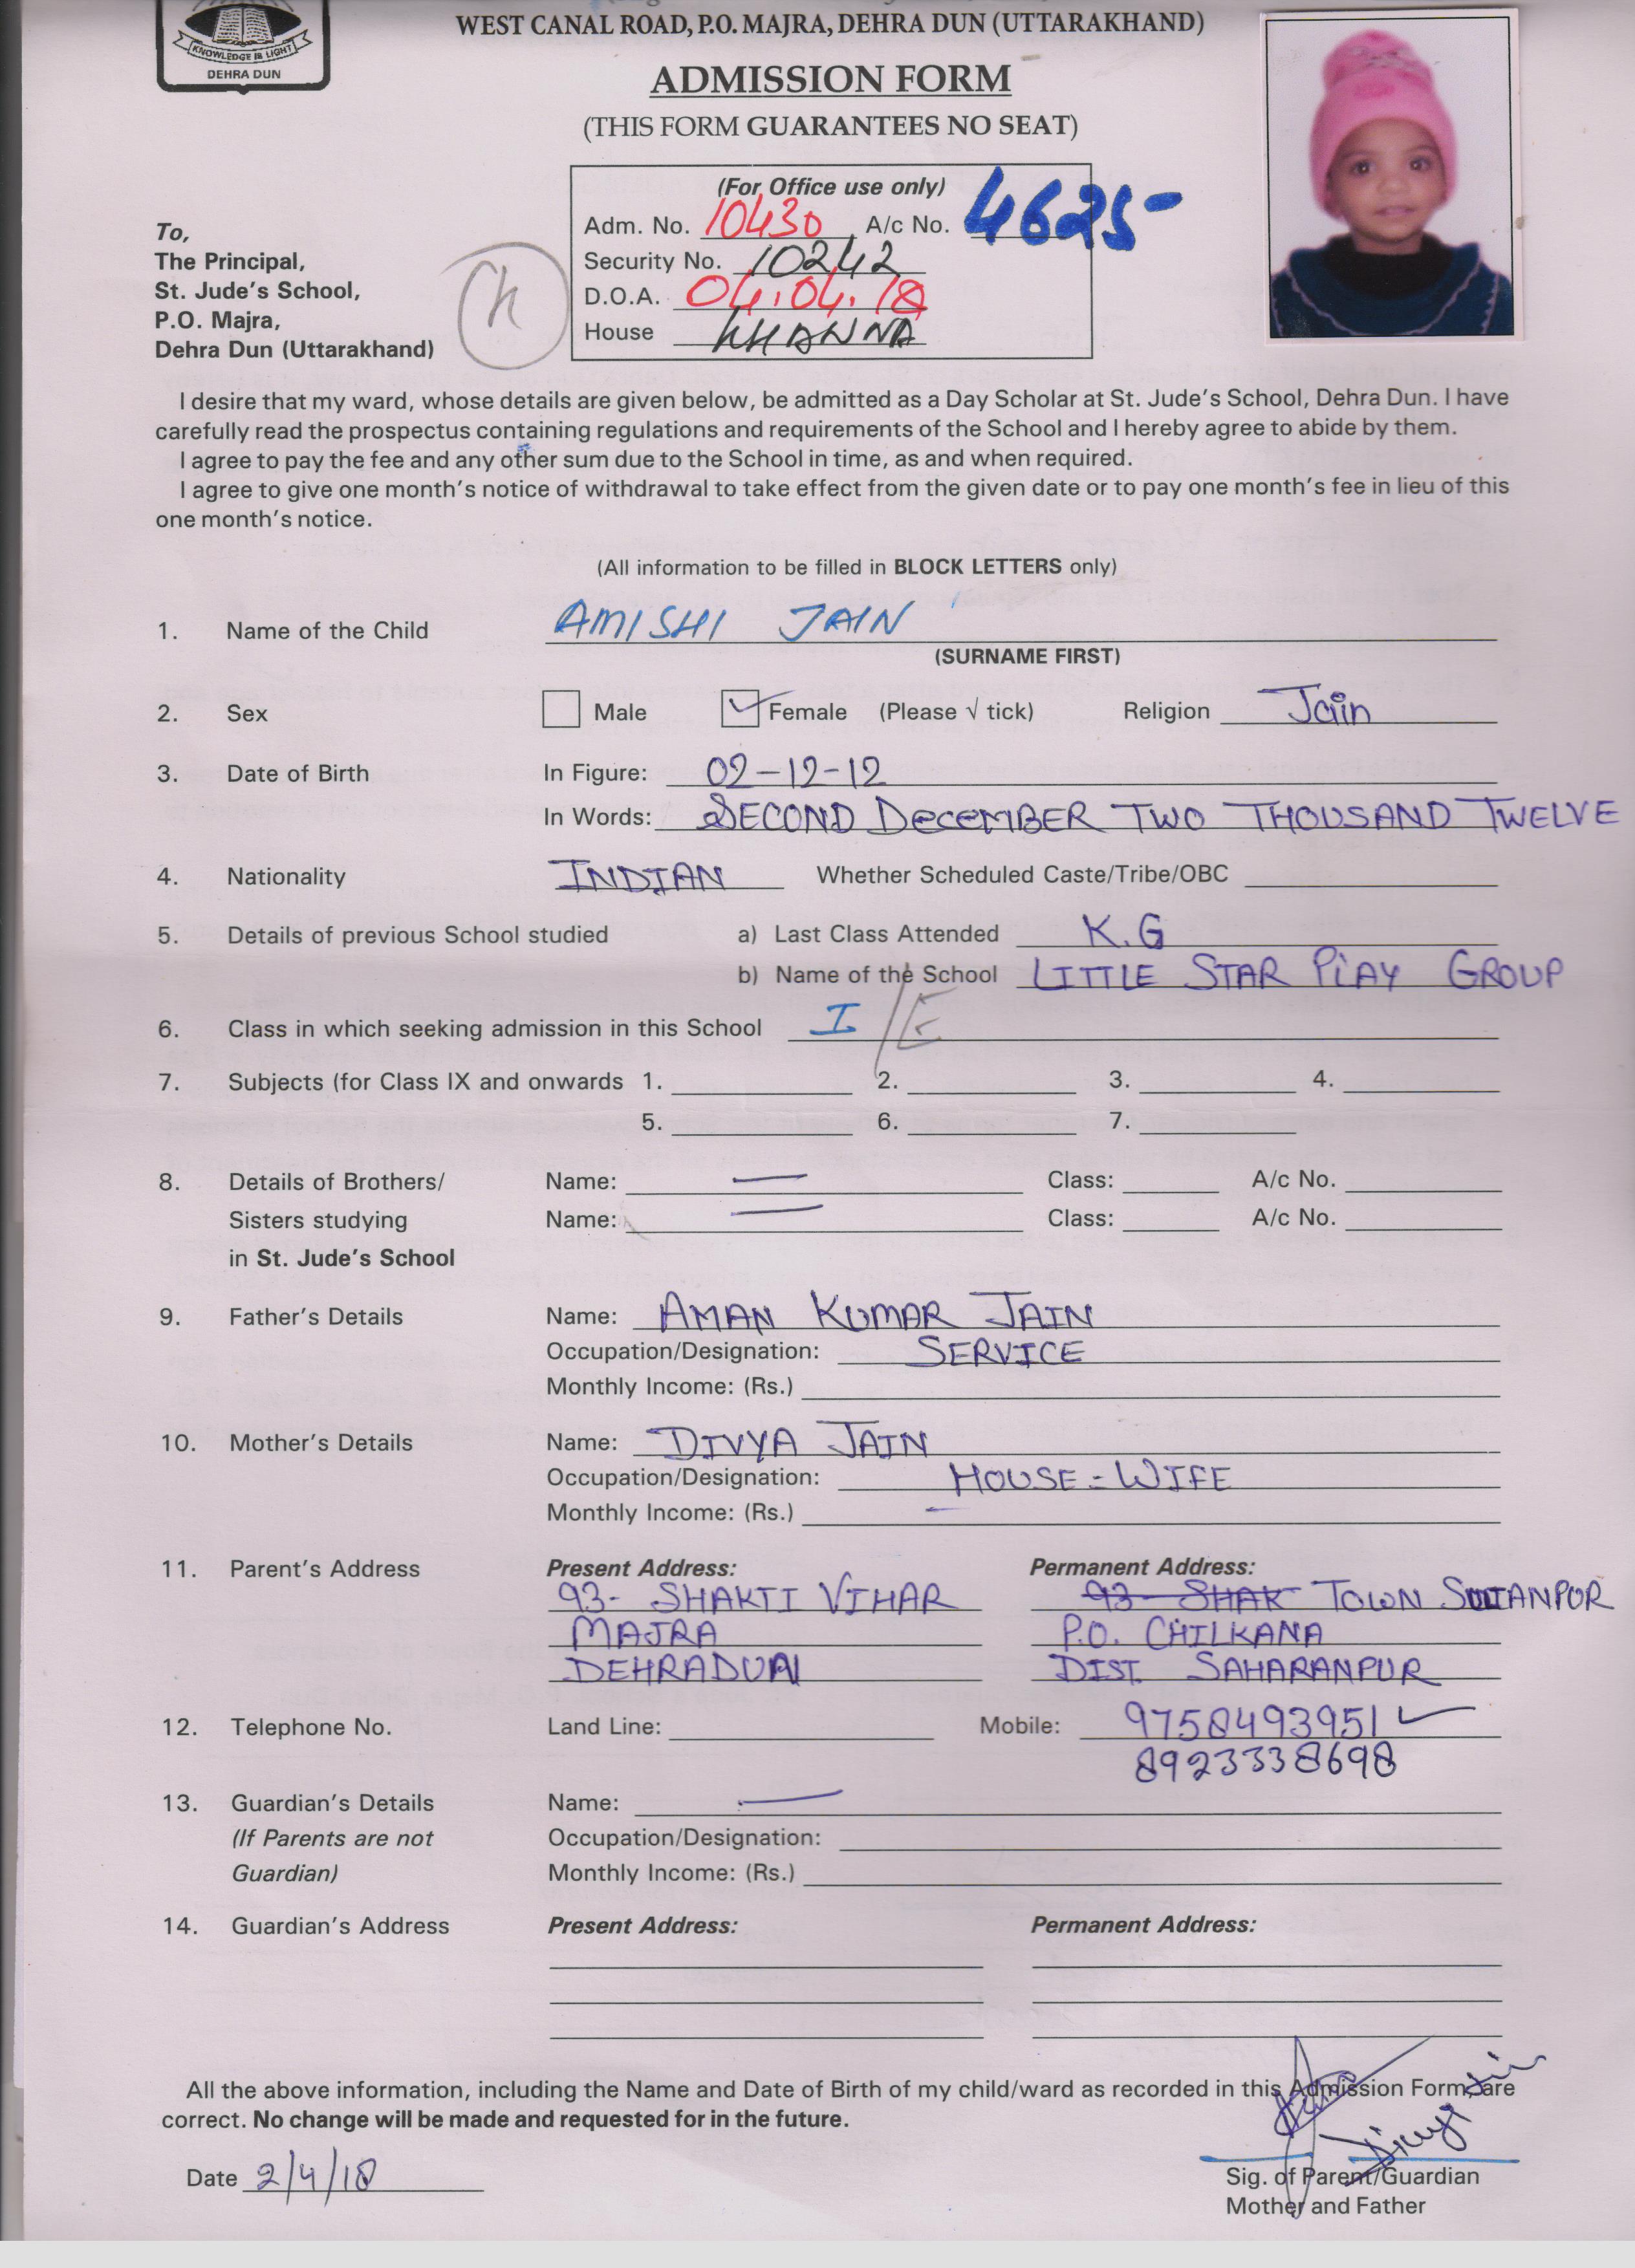 KNOWLEDGE IS LIGHT
DEHRA DUN
WEST CANAL ROAD, P.O. MAJRA, DEHRA DUN (UTTARAKHAND)
ADMISSION FORM
(THIS FORM GUARANTEES NO SEAT)
(For Office use only)
Adm. No. 10430 A/c No. 4625-
Security No. 10242
D.O.A. 04.04.18
House KHANNA
To,
The Principal,
St. Jude's School,
P.O. Majra,
Dehra Dun (Uttarakhand)
I desire that my ward, whose details are given below, be admitted as a Day Scholar at St. Jude's School, Dehra Dun. I have
carefully read the prospectus containing regulations and requirements of the School and I hereby agree to abide by them.
I agree to pay the fee and any other sum due to the School in time, as and when required.
I agree to give one month's notice of withdrawal to take effect from the given date or to pay one month's fee in lieu of this
one month's notice.
(All information to be filled in BLOCK LETTERS only)
1. Name of the Child AMISHI JAIN
(SURNAME FIRST)
2. Sex Male Female (Please √ tick) Religion Jain
3. Date of Birth In Figure: 02-12-12
In Words: SECOND DeceMBER TWO THOUSAND TWELVE
4. Nationality INDIAN Whether Scheduled Caste/Tribe/OBC
5. Details of previous School studied a) Last Class Attended K.G
b) Name of the School LITTLE STAR PLAY GROUP
6. Class in which seeking admission in this School I /E
7. Subjects (for Class IX and onwards 1. 2. 3. 4.
5. 6. 7.
8. Details of Brothers/ Name: Class: A/c No.
Sisters studying Name: Class: A/c No.
in St. Jude's School
9. Father's Details Name: AMAN KUMAR JAIN
Occupation/Designation: SERVICE
Monthly Income: (Rs.)
10. Mother's Details Name: DIVYA JAIN
Occupation/Designation: HOUSE-WIFE
Monthly Income: (Rs.) -
11. Parent's Address Present Address: Permanent Address:
93- SHAKTI VIHAR 93- SHAK TOWN SULTANPUR
MAJRA P.O. CHILKANA
DEHRADUN DIST. SAHARANPUR
12. Telephone No. Land Line: Mobile: 9758493951
8923338698
13. Guardian's Details Name:
(If Parents are not Occupation/Designation:
Guardian) Monthly Income: (Rs.)
14. Guardian's Address Present Address: Permanent Address:
All the above information, including the Name and Date of Birth of my child/ward as recorded in this Admission Form, are
correct. No change will be made and requested for in the future.
Date 2/4/18
Sig. of Parent/Guardian
Mother and Father